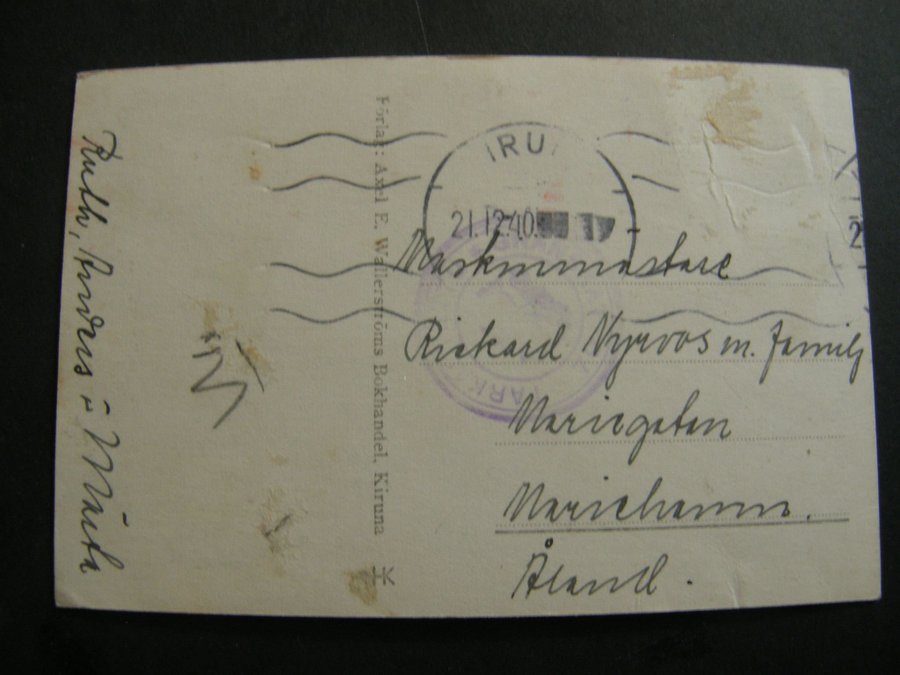 Ruth, Anders o Märta
Förlag: Axel E. Wallerströms Bokhandel, Kiruna
IRU
21.12.40
Maskinmästare
Rickard Nyroos m. familj
Mariegatan
Mariehamn.
Åland.